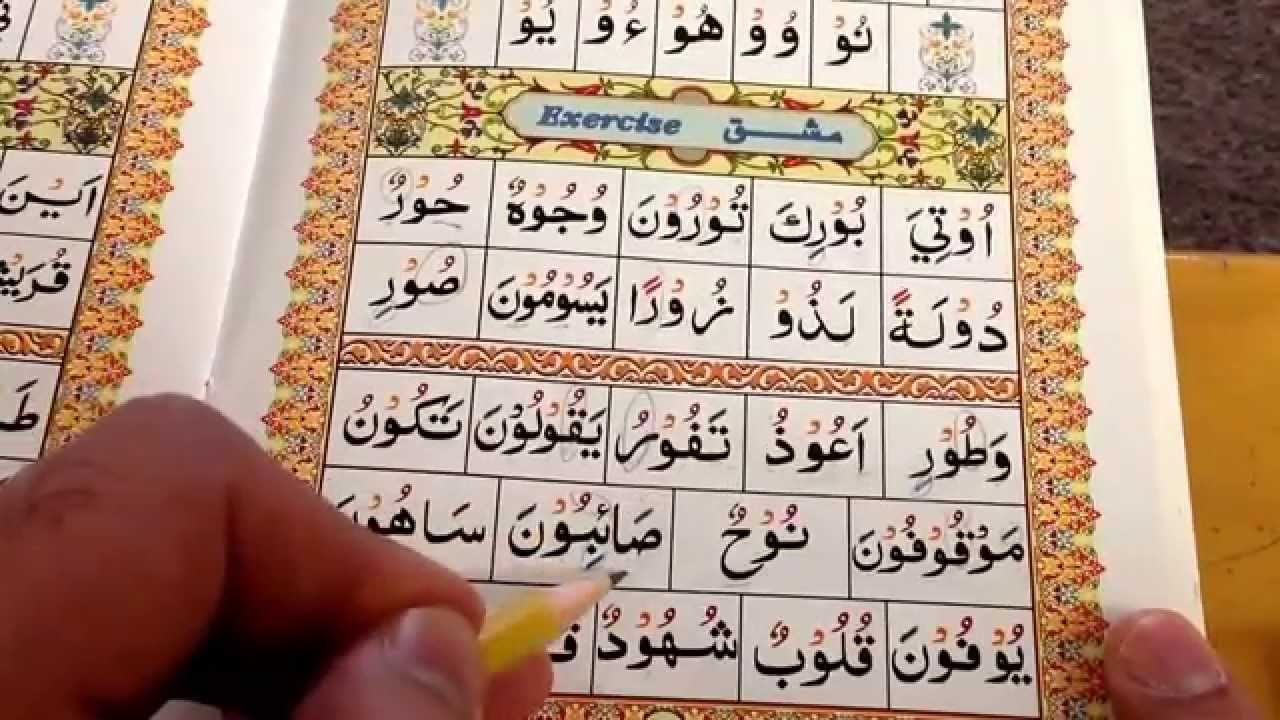 نُوْ وُوْ هُوْ ءُوْ يُوْ
Exercise مشق
اُوْتِيَ بُوْرِكَ تُوْرُوْنَ وُجُوْهٌ حُوْرٌ
دُوْلَةً لَذُوْ زُوْرًا يَسُوْمُوْنَ صُوْرِ
وَطُوْرِ اَعُوْذُ تَفُوْرُ يَقُوْلُوْنَ تَكُوْنُ
مَوْقُوْفُوْنَ نُوْحٌ صَائِبُوْنَ
يُوْفُوْنَ قُلُوْبٌ شُهُوْدٌ
اَيْنَ